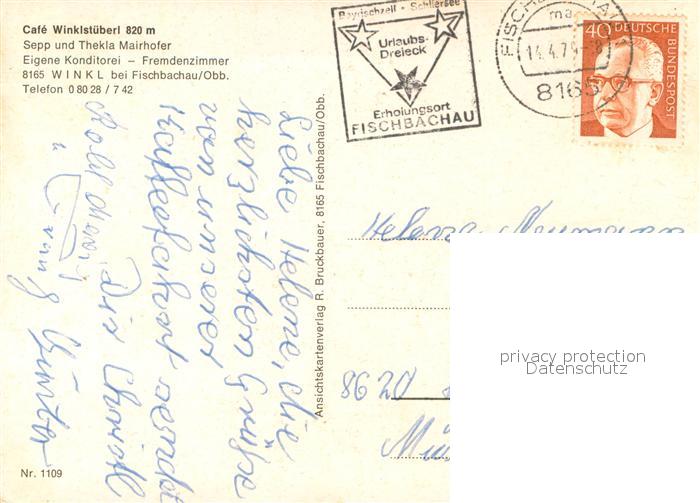 Café Winklstüberl 820 m
Sepp und Thekla Mairhofer
Eigene Konditorei – Fremdenzimmer
8165 WINKL bei Fischbachau/Obb.
Telefon 0 80 28 / 7 42
Bayrischzell - Schliersee
Urlaubs-
Dreieck
Erholungsort
FISCHBACHAU
14.4.7
8165
40
DEUTSCHE
BUNDESPOST
Liebe Helene, die
herzlichsten Grüße
von unserer
Kaffeefahrt sendet
Dir Christl
u.
Günter
Ansichtskartenverlag R. Bruckbauer, 8165 Fischbachau/Obb.
Helene Neumann
8620
privacy protection
Datenschutz
Nr. 1109